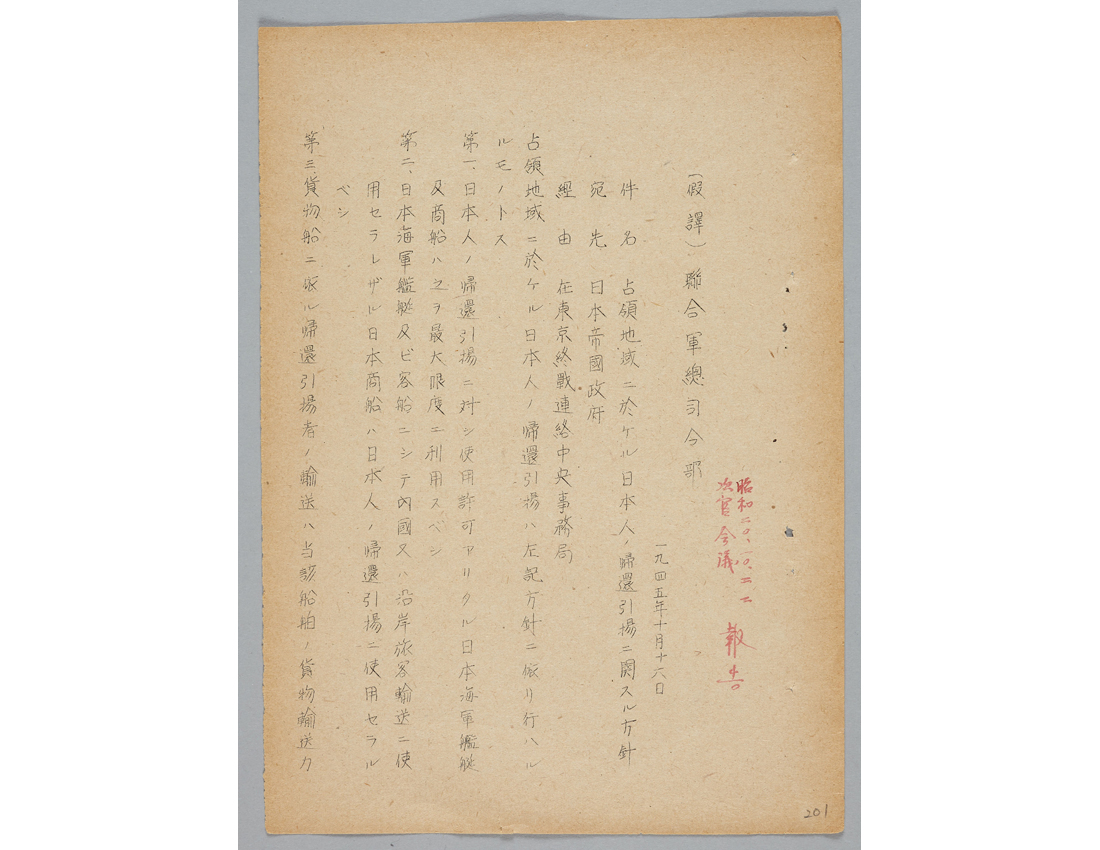 昭和二〇、一〇、二二
次官会議 報告
(假譯) 聯合軍總司令部
一九四五年十月十六日
件名 占領地域ニ於ケル日本人ノ帰還引揚ニ関スル方針
宛先 日本帝國政府
經由 在東京終戰連絡中央事務局
占領地域ニ於ケル日本人ノ帰還引揚ハ左記方針ニ依リ行ハル
ルモノトス
第一、日本人ノ帰還引揚ニ対シ使用許可アリタル日本海軍艦艇
及商船ハ之ヲ最大限度ニ利用スベシ
第二、日本海軍艦艇及ビ客船ニシテ内國又ハ沿岸旅客輸送ニ使
用セラレザル日本商船ハ日本人ノ帰還引揚ニ使用セラル
ベシ
第三、貨物船ニ依ル帰還引揚者ノ輸送ハ当該船舶ノ貨物輸送力
201